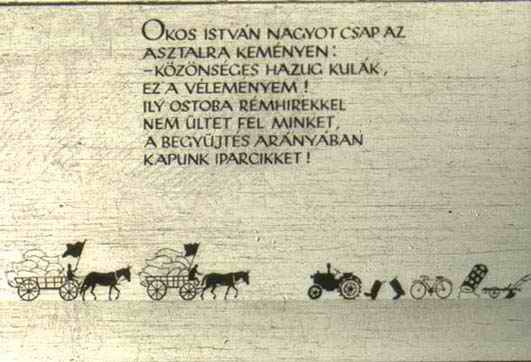 OKOS ISTVÁN NAGYOT CSAP AZ
ASZTALRA KEMÉNYEN:
–KÖZÖNSÉGES HAZUG KULÁK,
EZ A VÉLEMÉNYEM!
ILY OSTOBA RÉMHIREKKEL
NEM ÜLTET FEL MINKET,
A BEGYÜJTÉS ARÁNYÁBAN
KAPUNK IPARCIKKET!